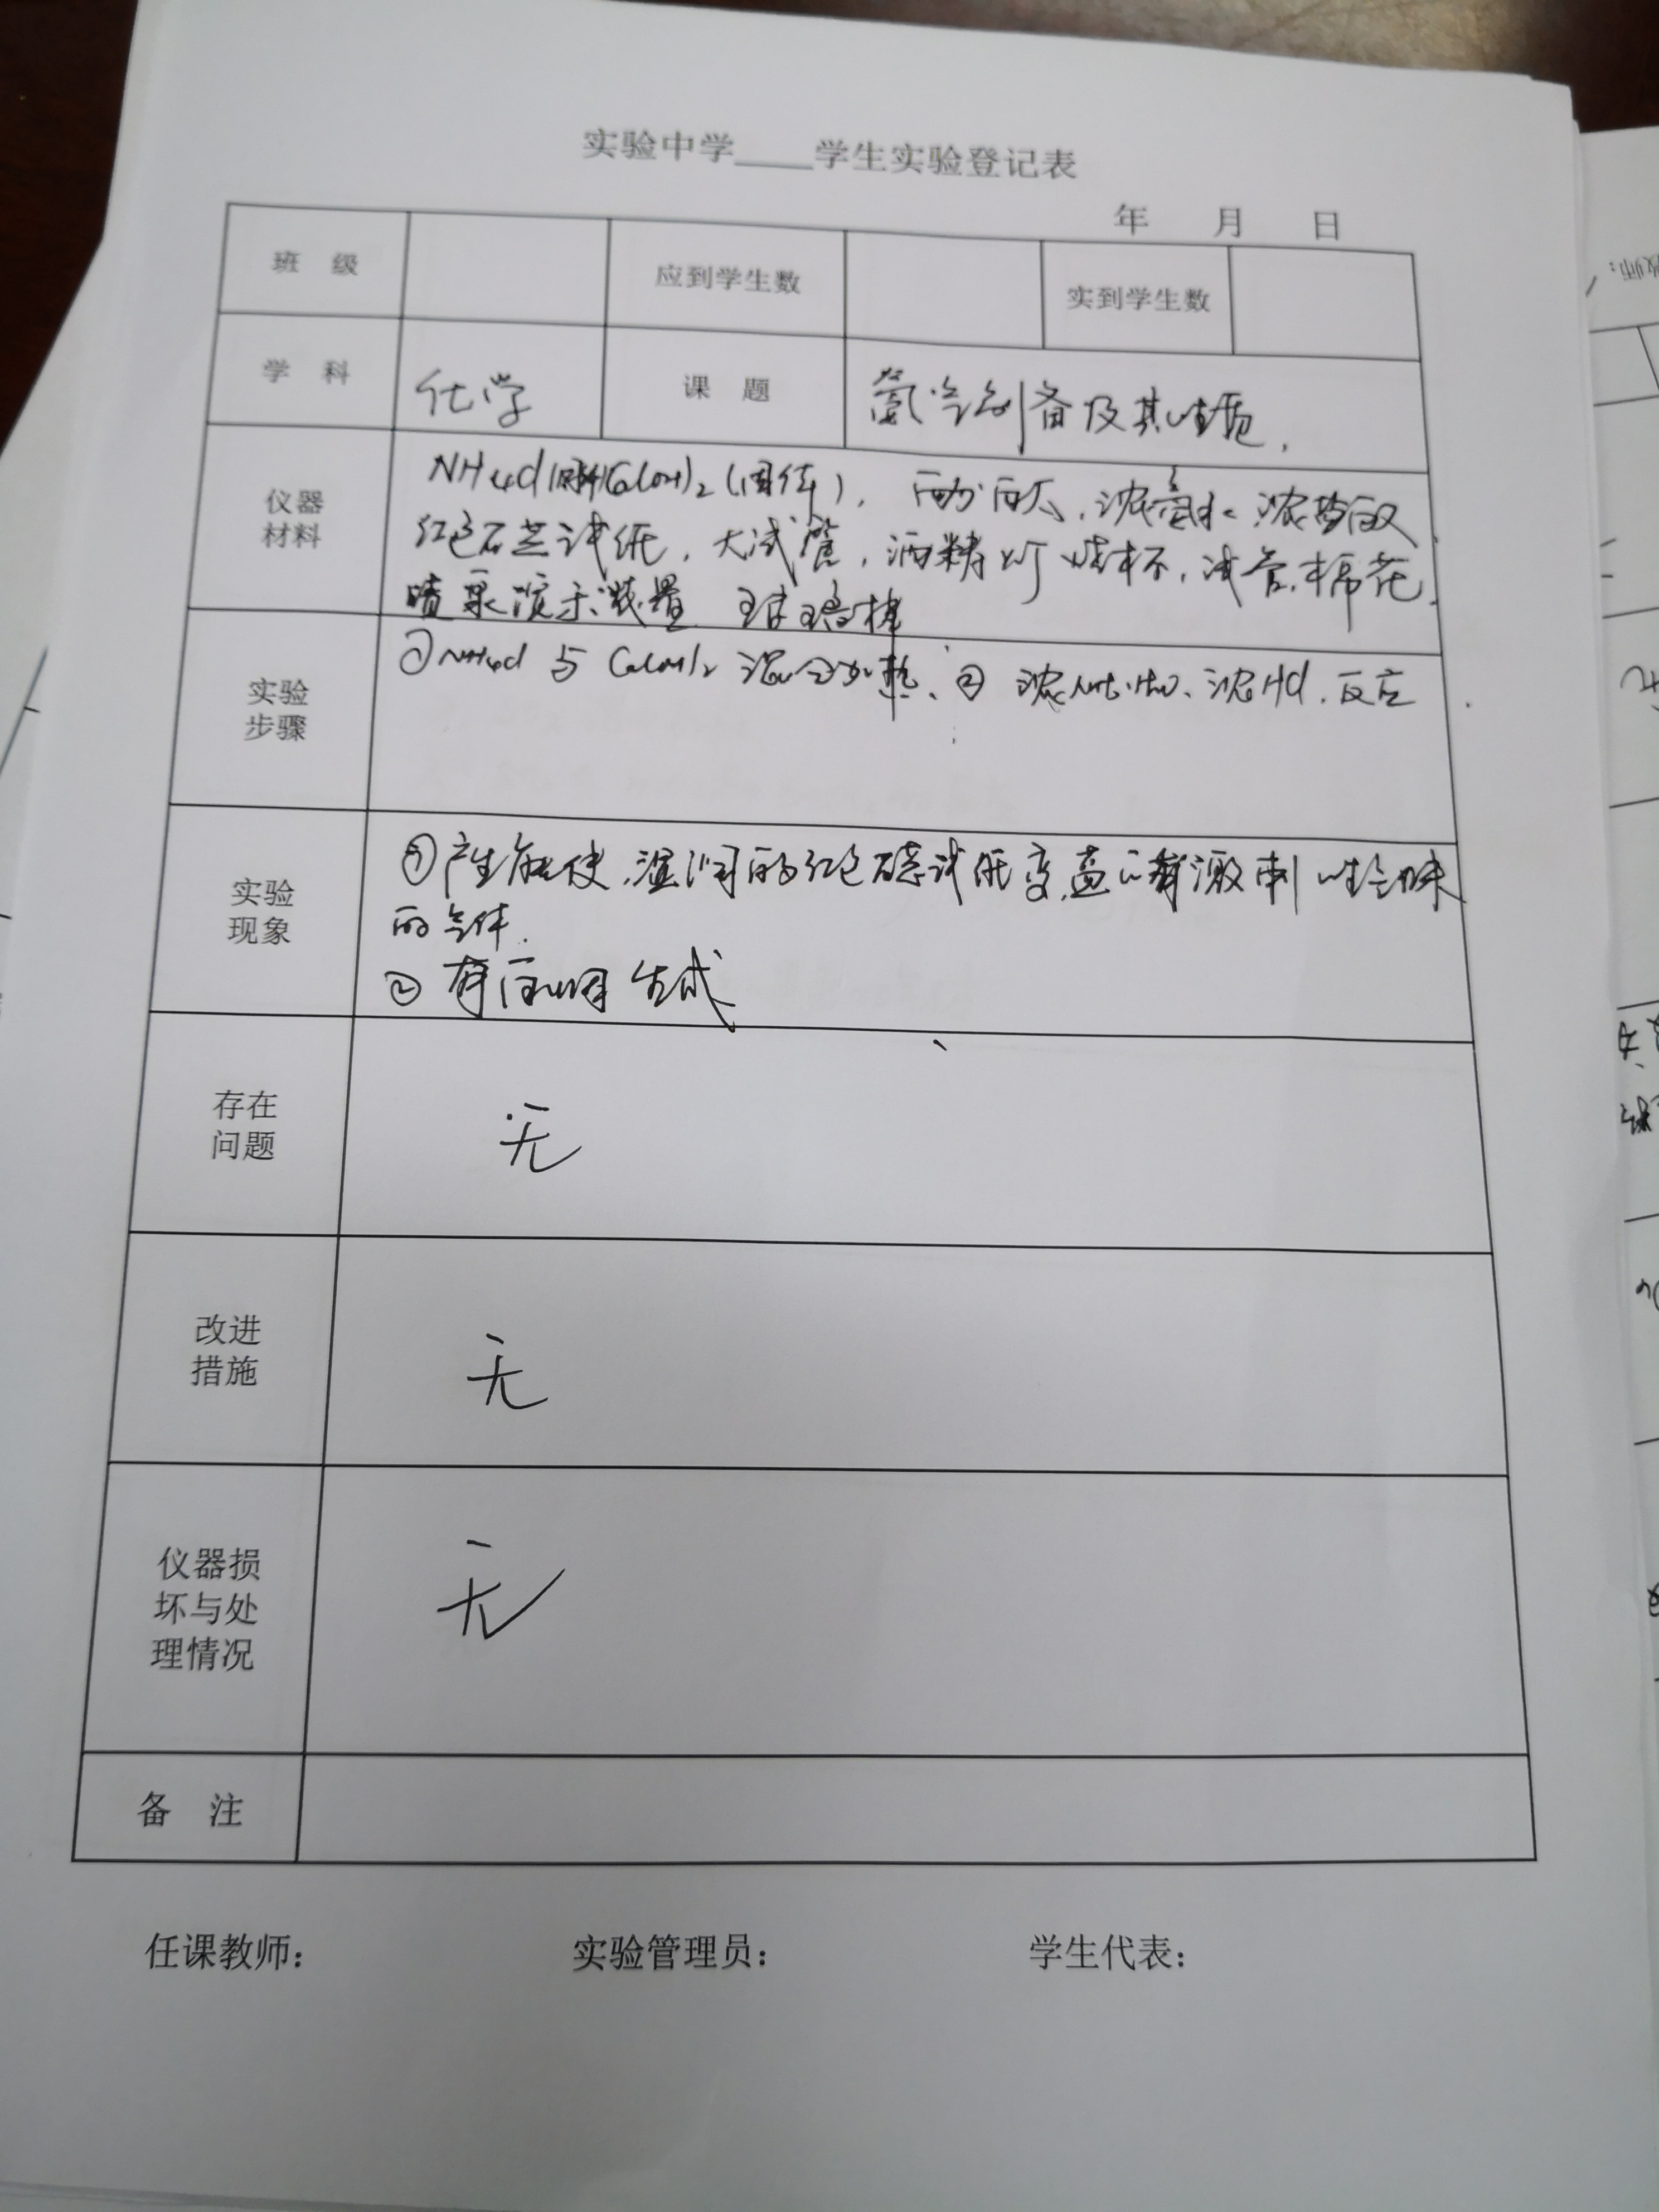 实验中学____学生实验登记表
年 月 日
班 级 应到学生数 实到学生数
学 科 化学 课 题 氨气制备及其性质.
仪器
材料
NH4Cl(固体)Ca(OH)2(固体), 酚酞, 浓氨水 浓盐酸
红色石芯试纸, 大试管, 酒精灯 烧杯, 试管, 棉花,
喷泉演示装置 玻璃棒
实验
步骤
①NH4Cl 与 Ca(OH)2 混合加热、② 浓NH3·H2O、浓HCl.反应
实验
现象
①产生能使湿润的红色石蕊试纸变蓝 有激刺性气味
的气体.
② 有白烟生成
存在
问题
无
改进
措施
无
仪器损
坏与处
理情况
无
备 注
任课教师: 实验管理员: 学生代表: